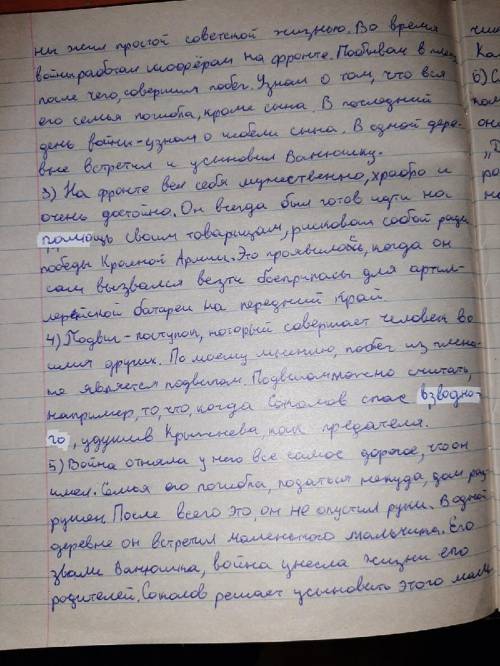 ны жил простой советской жизнью. Во время
войны работал шофёром на фронте. Побывал в плену
после чего, совершил побег. Узнал о том, что вся
его семья погибла, кроме сына. В последний
день войны - узнал о гибели сына. В одной дере-
вне встретил и усыновил Ванюшку.
3) На фронте вел себя мужественно, храбро и
очень достойно. Он всегда был готов идти на
помощь своим товарищам, рисковал собой ради
победы Красной Армии. Это проявилось, когда он
сам вызвался везти боеприпасы для артил-
лерейской батареи на передний край
4) Подвиг - поступок, который совершает человек во
имя других. По моему мнению, побег из плена
не является подвигом. Подвигом можно считать,
например, то, что, когда Соколов спас взводно-
го, удушив Крыжнева, как предателя.
5) Война отняла у него все самое дорогое, что он
имел. Семья его погибла, податься некуда, дом раз-
рушен. После всего это, он не опустил руки. В одной
деревне он встретил маленького мальчика. Его
звали Ванюшка, война унесла жизни его
родителей. Соколов решает усыновить этого маль
чи
Ка
6) С
пом
они
„П
ро
на